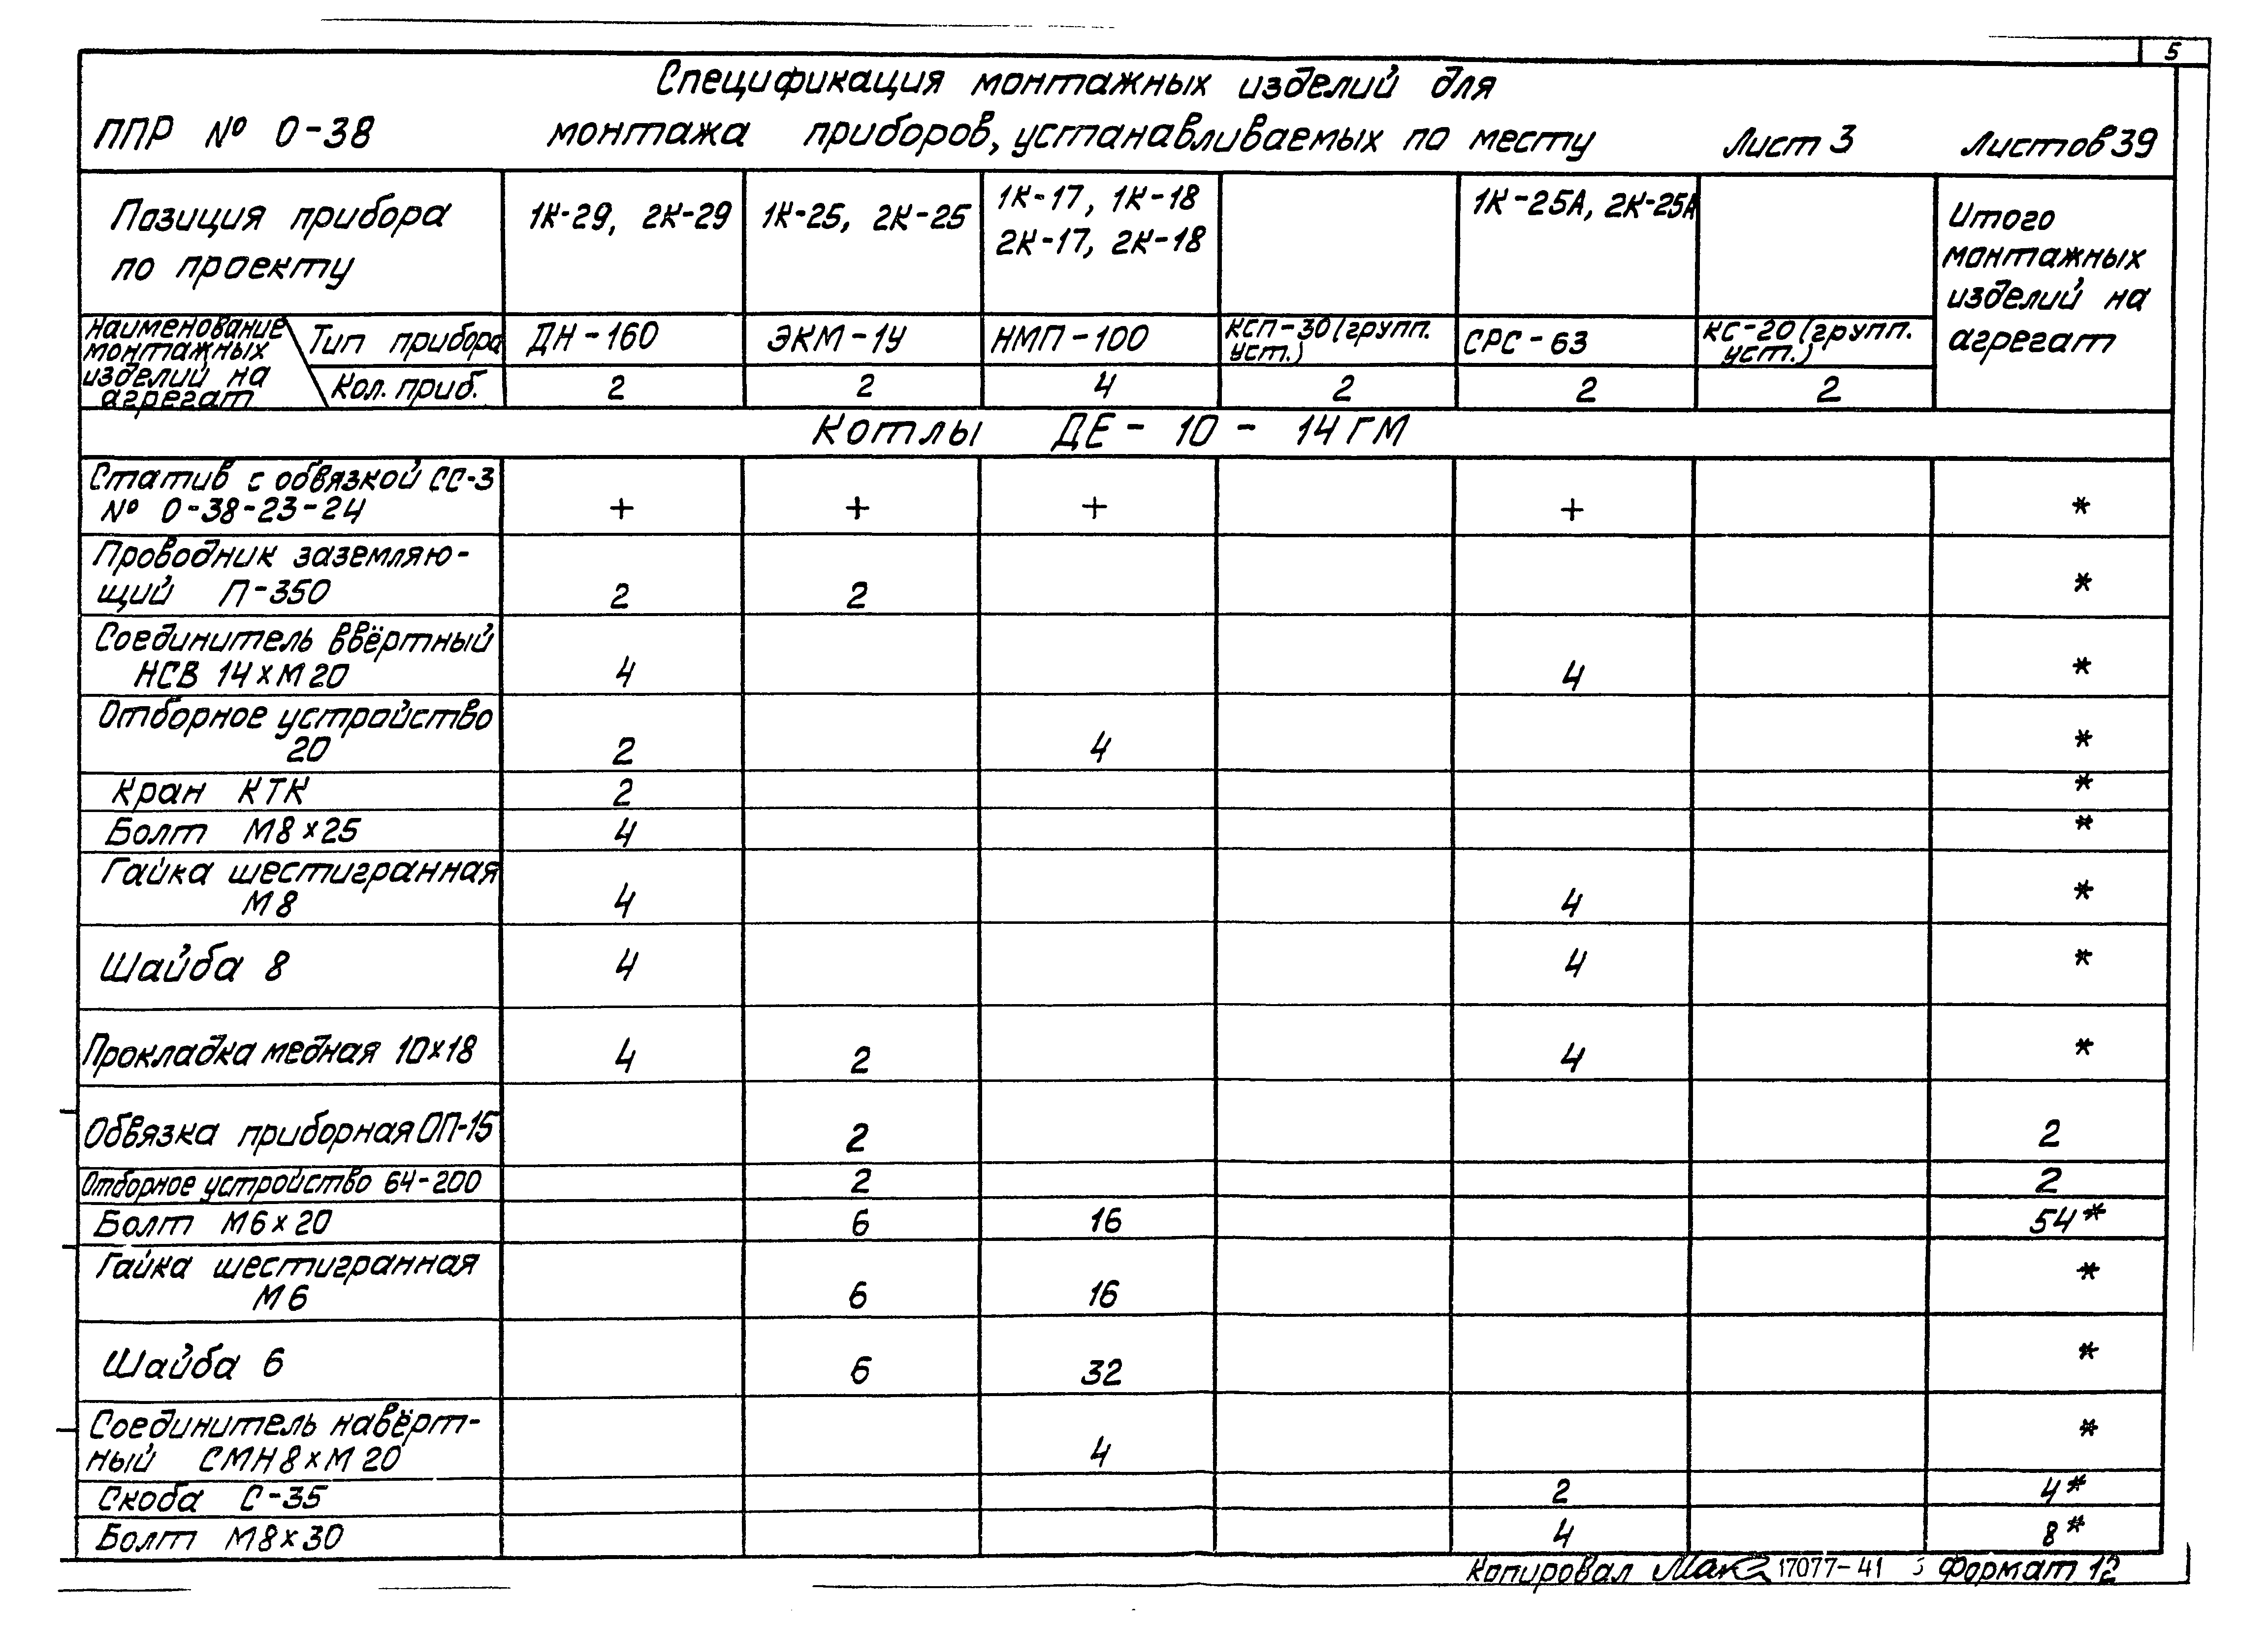 5
Спецификация монтажных изделий для
ППР № 0-38 монтажа приборов, устанавливаемых по месту Лист 3 Листов 39
Позиция прибора
по проекту
1К-29, 2К-29
1К-25, 2К-25
1К-17, 1К-18
2К-17, 2К-18
1К-25А, 2К-25А
Итого
монтажных
изделий на
агрегат
Наименование
монтажных
изделий на
агрегат
Тип прибора
ДН-160
ЭКМ-1У
НМП-100
КСП-30 (групп.
уст.)
СРС-63
КС-20 (групп.
уст.)
Кол. приб. 2 2 4 2 2 2
Котлы ДЕ - 10 - 14 ГМ
Статив с обвязкой СС-3
№ 0-38-23-24 + + + + *
Проводник заземляю-
щий П-350 2 2 *
Соединитель ввёртный
НСВ 14хМ20 4 4 *
Отборное устройство
20 2 4 *
Кран КТК 2 *
Болт М8х25 4 *
Гайка шестигранная
М8 4 4 *
Шайба 8 4 4 *
Прокладка медная 10х18 4 2 4 *
Обвязка приборная ОП-15 2 2
Отборное устройство 64-200 2 2
Болт М6х20 6 16 54*
Гайка шестигранная
М6 6 16 *
Шайба 6 6 32 *
Соединитель навёрт-
ный СМН8хМ20 4 *
Скоба С-35 2 4*
Болт М8х30 4 8*
Копировал 17077-41 Формат 12